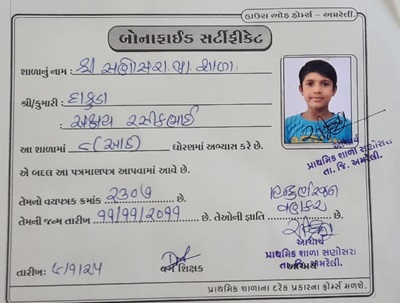 હાઉસ ઓફ ફોર્મસ - અમરેલી.
બોનાફાઈડ સર્ટીફીકેટ
શાળાનું નામ : શ્રી સણોસરા પ્રા. શાળા
શ્રી/કુમારી :
રસીકભાઈ
આ શાળામાં ૮ (આઠ) ધોરણમાં અભ્યાસ કરે છે.
એ બદલ આ પત્રમાણપત્ર આપવામાં આવે છે.
તેમનો વયપત્રક ક્રમાંક ૨૩૦૭ છે.
તેમની જન્મ તારીખ ૧૧/૧૧/૨૦૧૧ છે. તેઓની જ્ઞાતિ છે.
આચાર્ય
પ્રાથમિક શાળા સણોસરા
તા. જિ. અમરેલી.
આચાર્ય
પ્રાથમિક શાળા સણોસરા
તા. જિ. અમરેલી.
તારીખ: વર્ગ શિક્ષક
પ્રાથમિક શાળાના દરેક પ્રકારના ફોર્મસ મળશે.